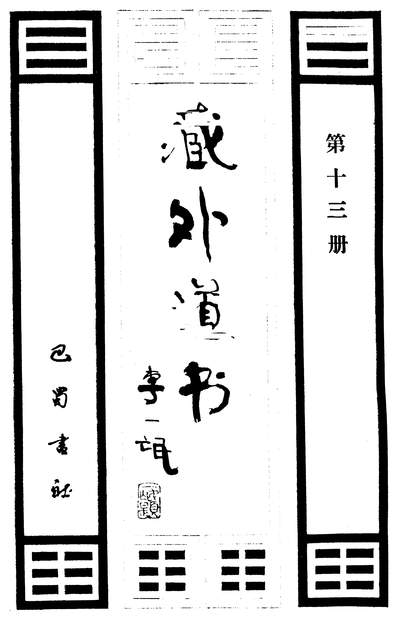 第十三册
藏外道书
李一氓
巴蜀書社